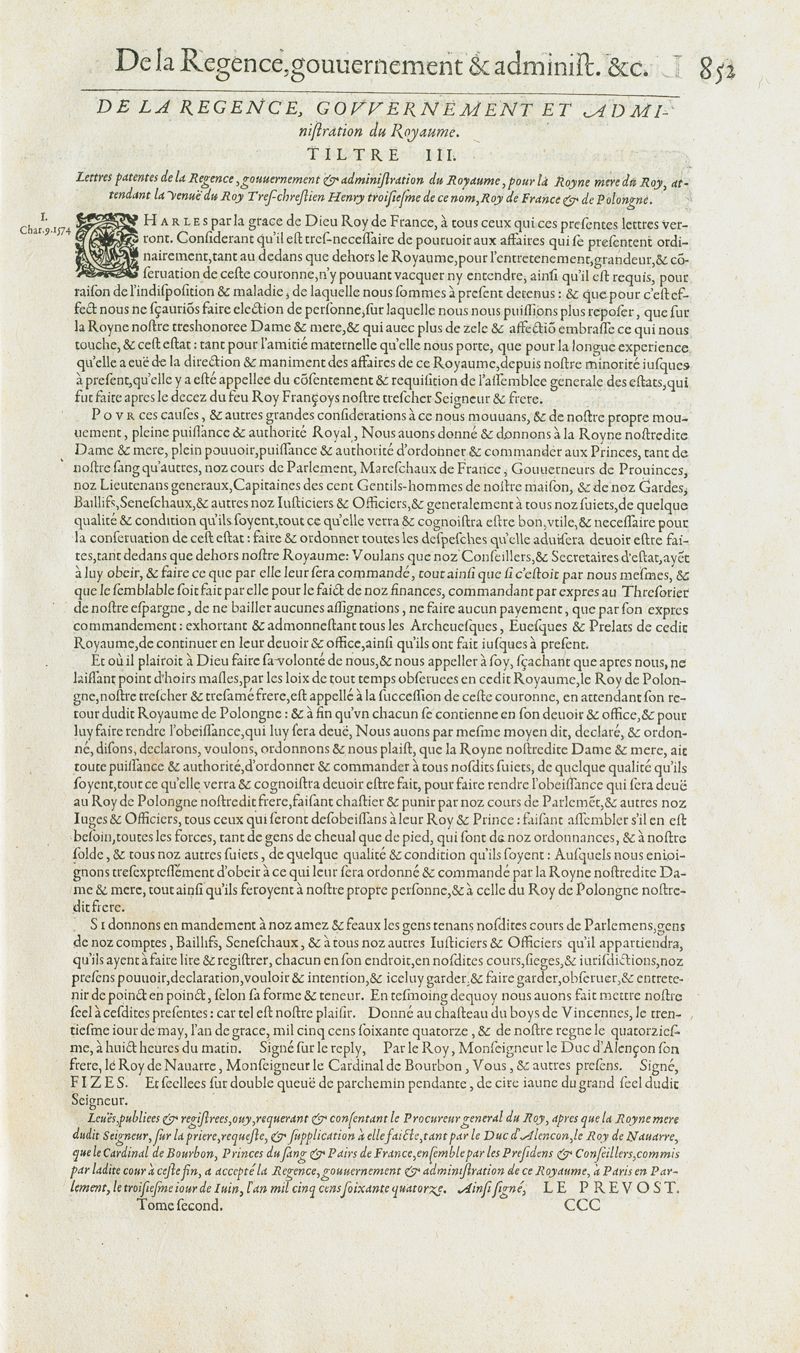 De la Regence, gouuernement & adminiſt. &c. 852
DE LA REGENCE, GOVVERNEMENT ET ADMI-
niſtration du Royaume.
TILTRE III.
Lettres patentes de la Regence, gouuernement & adminiſtration du Royaume, pour la Royne mere du Roy, at-
tendant la venuë du Roy Treſ-chreſtien Henry troiſieſme de ce nom, Roy de France & de Polongne.
I.
Char.9.1574
CHARLES par la grace de Dieu Roy de France, à tous ceux qui ces preſentes lettres ver-
ront. Conſiderant qu'il eſt treſ-neceſſaire de pouruoir aux affaires qui ſe preſentent ordi-
nairement, tant au dedans que dehors le Royaume, pour l'entretenement, grandeur, & cõ-
ſeruation de ceſte couronne, n'y pouuant vacquer ny entendre, ainſi qu'il eſt requis, pour
raiſon de l'indiſpoſition & maladie, de laquelle nous ſommes à preſent detenus : & que pour c'eſt ef-
fect nous ne ſçauriõs faire election de perſonne, ſur laquelle nous nous puiſſions plus repoſer, que ſur
la Royne noſtre treshonoree Dame & mere, & qui auec plus de zele & affectiõ embraſſe ce qui nous
touche, & ceſt eſtat : tant pour l'amitié maternelle qu'elle nous porte, que pour la longue experience
qu'elle a euë de la direction & maniment des affaires de ce Royaume, depuis noſtre minorité iuſques
à preſent, qu'elle y a eſté appellee du cõſentement & requiſition de l'aſſemblee generale des eſtats, qui
fut faite apres le decez du feu Roy Françoys noſtre treſcher Seigneur & frere.
POVR ces cauſes, & autres grandes conſiderations à ce nous mouuans, & de noſtre propre mou-
uement, pleine puiſſance & authorité Royal, Nous auons donné & donnons à la Royne noſtredite
Dame & mere, plein pouuoir, puiſſance & authorité d'ordonner & commander aux Princes, tant de
noſtre ſang qu'autres, noz cours de Parlement, Mareſchaux de France, Gouuerneurs de Prouinces,
noz Lieutenans generaux, Capitaines des cent Gentils-hommes de noſtre maiſon, & de noz Gardes,
Baillifs, Seneſchaux, & autres noz Iuſticiers & Officiers, & generalement à tous noz ſuiets, de quelque
qualité & condition qu'ils ſoyent, tout ce qu'elle verra & cognoiſtra eſtre bon, vtile, & neceſſaire pour
la conſeruation de ceſt eſtat : faire & ordonner toutes les deſpeſches qu'elle aduiſera deuoir eſtre fai-
tes, tant dedans que dehors noſtre Royaume: Voulans que noz Conſeillers, & Secretaires d'eſtat, ayẽt
à luy obeir, & faire ce que par elle leur ſera commandé, tout ainſi que ſi c'eſtoit par nous meſmes, &
que le ſemblable ſoit fait par elle pour le faict de noz finances, commandant par expres au Threſorier
de noſtre eſpargne, de ne bailler aucunes aſſignations, ne faire aucun payement, que par ſon expres
commandement : exhortant & admonneſtant tous les Archeueſques, Eueſques & Prelats de cedit
Royaume, de continuer en leur deuoir & office, ainſi qu'ils ont fait iuſques à preſent.
Et où il plairoit à Dieu faire ſa volonté de nous, & nous appeller à ſoy, ſçachant que apres nous, ne
laiſſant point d'hoirs maſles, par les loix de tout temps obſeruees en cedit Royaume, le Roy de Polon-
gne, noſtre treſcher & treſamé frere, eſt appellé à la ſucceſſion de ceſte couronne, en attendant ſon re-
tour dudit Royaume de Polongne : & à fin qu'vn chacun ſe contienne en ſon deuoir & office, & pour
luy faire rendre l'obeiſſance, qui luy ſera deuë, Nous auons par meſme moyen dit, declaré, & ordon-
né, diſons, declarons, voulons, ordonnons & nous plaiſt, que la Royne noſtredite Dame & mere, ait
toute puiſſance & authorité, d'ordonner & commander à tous noſdits ſuiets, de quelque qualité qu'ils
ſoyent, tout ce qu'elle verra & cognoiſtra deuoir eſtre fait, pour faire rendre l'obeiſſance qui ſera deuë
au Roy de Polongne noſtredit frere, faiſant chaſtier & punir par noz cours de Parlemẽt, & autres noz
Iuges & Officiers, tous ceux qui ſeront deſobeiſſans à leur Roy & Prince : faiſant aſſembler s'il en eſt
beſoin, toutes les forces, tant de gens de cheual que de pied, qui ſont de noz ordonnances, & à noſtre
ſolde, & tous noz autres ſuiets, de quelque qualité & condition qu'ils ſoyent : Auſquels nous enioi-
gnons treſexpreſſément d'obeir à ce qui leur ſera ordonné & commandé par la Royne noſtredite Da-
me & mere, tout ainſi qu'ils feroyent à noſtre propre perſonne, & à celle du Roy de Polongne noſtre-
dit frere.
SI donnons en mandement à noz amez & feaux les gens tenans noſdites cours de Parlemens, gens
de noz comptes, Baillifs, Seneſchaux, & à tous noz autres Iuſticiers & Officiers qu'il appartiendra,
qu'ils ayent à faire lire & regiſtrer, chacun en ſon endroit, en noſdites cours, ſieges, & iuriſdictions, noz
preſens pouuoir, declaration, vouloir & intention, & iceluy garder, & faire garder, obſeruer, & entrete-
nir de poinct en poinct, ſelon ſa forme & teneur. En teſmoing dequoy nous auons fait mettre noſtre
ſeel à ceſdites preſentes : car tel eſt noſtre plaiſir. Donné au chaſteau du boys de Vincennes, le tren-
tieſme iour de may, l'an de grace, mil cinq cens ſoixante quatorze, & de noſtre regne le quatorzieſ-
me, à huict heures du matin. Signé ſur le reply, Par le Roy, Monſeigneur le Duc d'Alençon ſon
frere, le Roy de Nauarre, Monſeigneur le Cardinal de Bourbon, Vous, & autres preſens. Signé,
FIZES. Et ſeellees ſur double queuë de parchemin pendante, de cire iaune du grand ſeel dudit
Seigneur.
Leuës, publiees & regiſtrees, ouy, requerant & conſentant le Procureur general du Roy, apres que la Royne mere
dudit Seigneur, ſur la priere, requeſte, & ſupplication à elle faicte, tant par le Duc d'Alencon, le Roy de Nauarre,
que le Cardinal de Bourbon, Princes du ſang & Pairs de France, enſemble par les Preſidens & Conſeillers, commis
par ladite cour à ceſte fin, a accepté la Regence, gouuernement & adminiſtration de ce Royaume, à Paris en Par-
lement, le troiſieſme iour de Iuin, l'an mil cinq cens ſoixante quatorze. Ainſi ſigné, LE PREVOST.
Tome ſecond. CCC